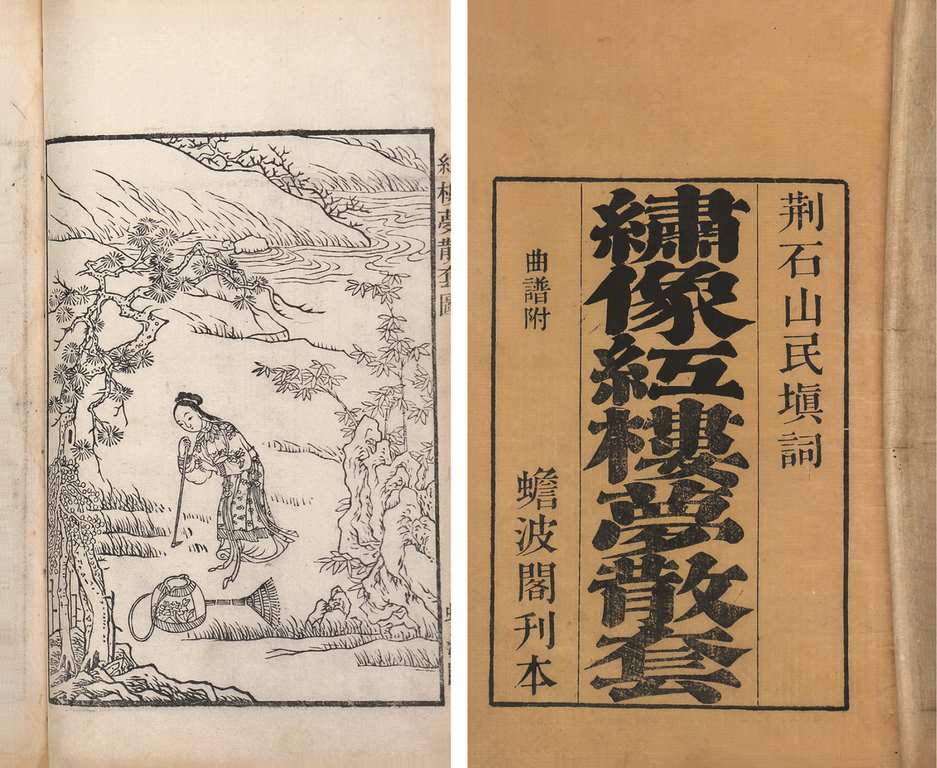 荆石山民塡詞
繡像紅樓夢散套
曲譜附
蟾波閣刊本
紅樓夢散套圖